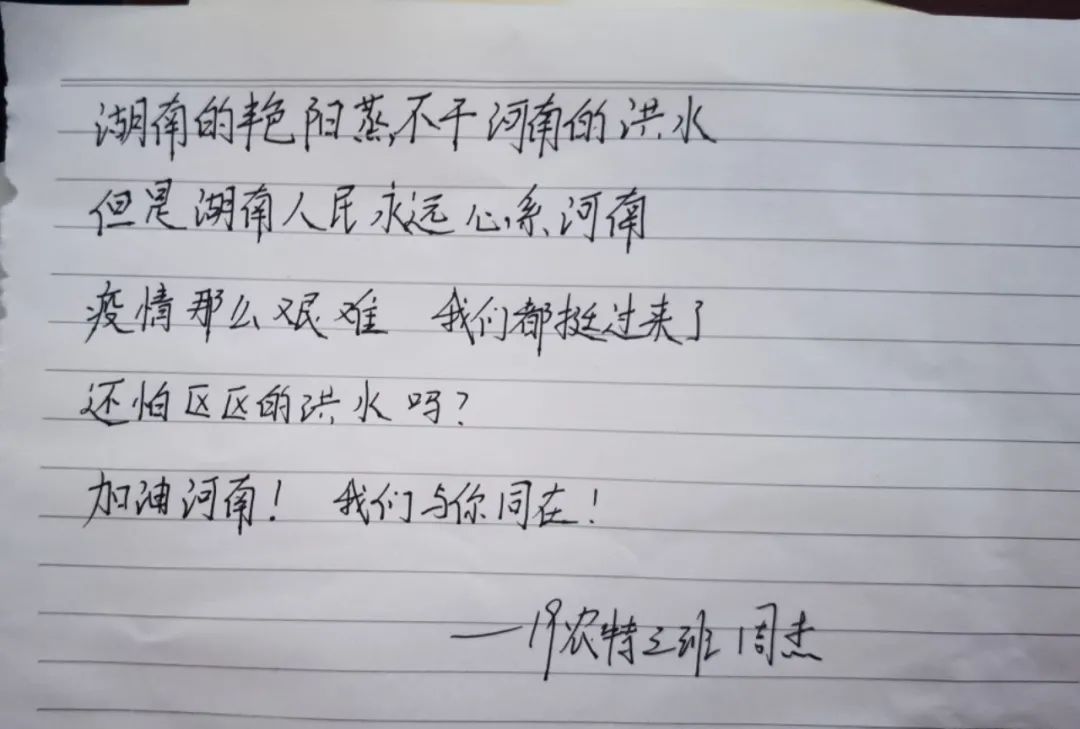 湖南的艳阳蒸不干河南的洪水
但是湖南人民永远心系河南
疫情那么艰难 我们都挺过来了
还怕区区的洪水吗?
加油河南! 我们与你同在!
——19农特三班 周杰